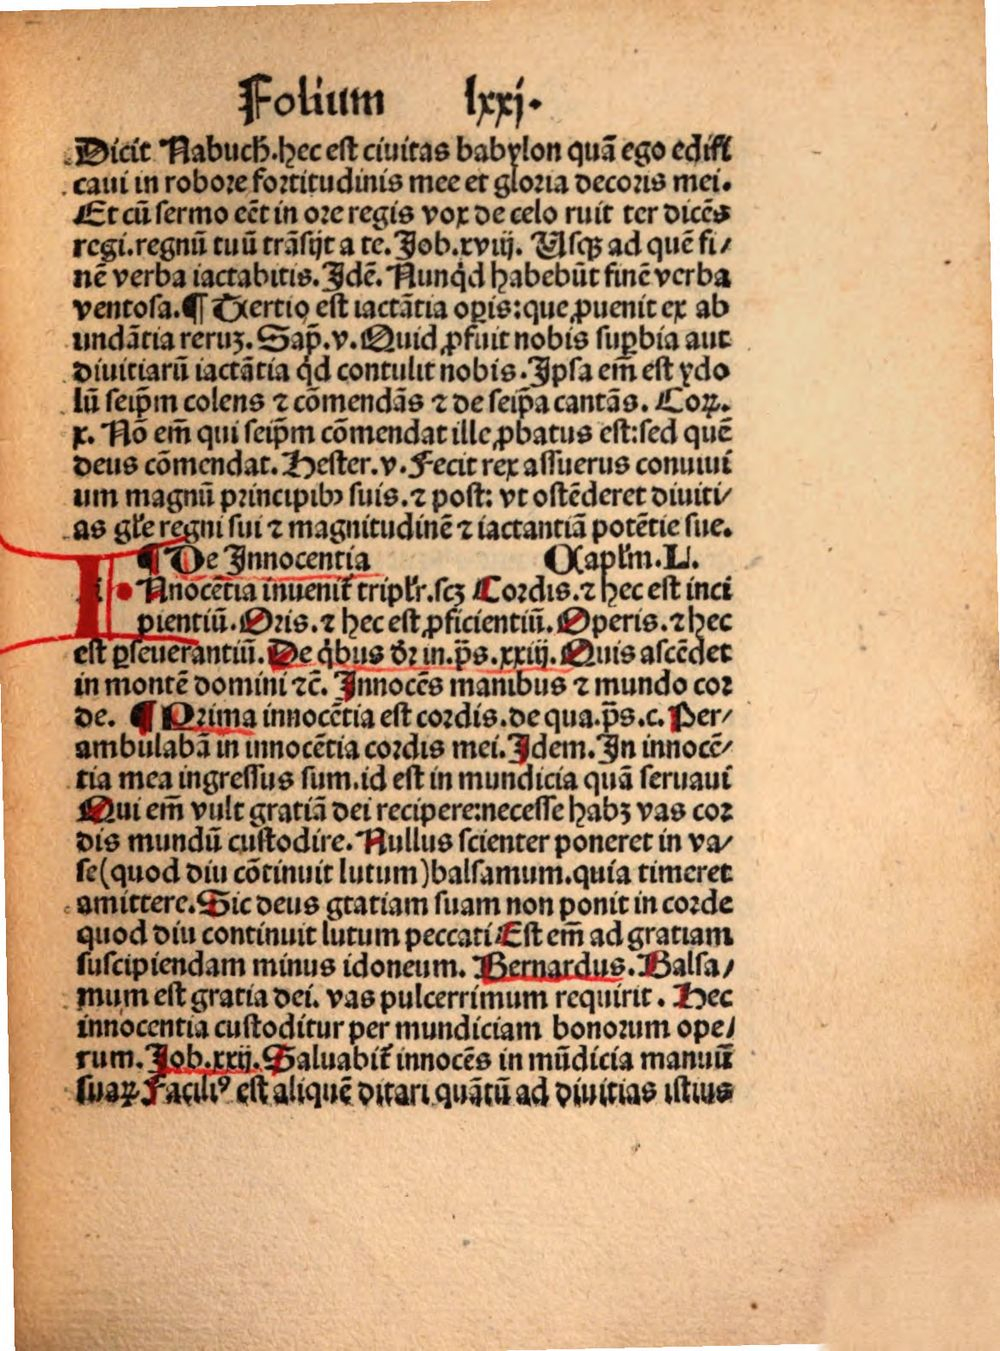 Folium lxxj.
Dicit Nabuch̄. hec est ciuitas babylon quā ego edifi
caui in robore fortitudinis mee et gloria decoris mei.
Et cū sermo eēt in ore regis vox de celo ruit ter dicēs
regi. regnū tuū trāsijt a te. Job. xviij. Usqꝫ ad quē fi/
nē verba iactabitis. Jdē. Nunqͥd habebūt finē verba
ventosa. ¶ Tertio est iactātia oꝑis: que ꝓuenit ex ab
undātia reruꝫ. Sap̄. v. Quid ꝓfuit nobis suꝑbia aut
diuitiarū iactātia qͥd contulit nobis. Jpsa em̄ est ydo
lū seip̄m colens ⁊ cōmendās ⁊ de seip̄a cantās. Coꝝ.
x. Nō em̄ qui seip̄m cōmendat ille ꝓbatus est: sed quē
deus cōmendat. Hester. v. Fecit rex assuerus conuiui
um magnū principibꝰ suis. ⁊ post: vt ostēderet diuiti/
as gl̄e regni sui ⁊ magnitudinē ⁊ iactantiā potētie sue.
¶ De Innocentia Capl̄m. L.
I Nnocētia inuenit᷑ tripl̄r. scꝫ Cordis. ⁊ hec est inci
pientiū. Oris. ⁊ hec est ꝓficientiū. Operis. ⁊ hec
est ꝑseuerantiū. De qͥbus dꝛ in. p̄s. xxiij. Quis ascēdet
in montē domini ⁊c̄. Jnnocēs manibus ⁊ mundo cor
de. ¶ Prima innocētia est cordis. de qua. p̄s. c. Per/
ambulabā in innocētia cordis mei. Jdem. Jn innocē/
tia mea ingressus sum. id est in mundicia quā seruaui
Qui em̄ vult gratiā dei recipere: necesse habꝫ vas cor
dis mundū custodire. Nullus scienter poneret in va/
se (quod diu cōtinuit lutum) balsamum. quia timeret
amittere. Sic deus gtatiam suam non ponit in corde
quod diu continuit lutum peccati Est em̄ ad gratiam
suscipiendam minus idoneum. Bernardus. Balsa/
mum est gratia dei. vas pulcerrimum requirit. Hec
innocentia custoditur per mundiciam bonorum ope/
rum. Job. xxij. Saluabit᷑ innocēs in mūdicia manuū
suaꝝ. Faciliꝰ est aliquē ditari quātū ad diuitias istius